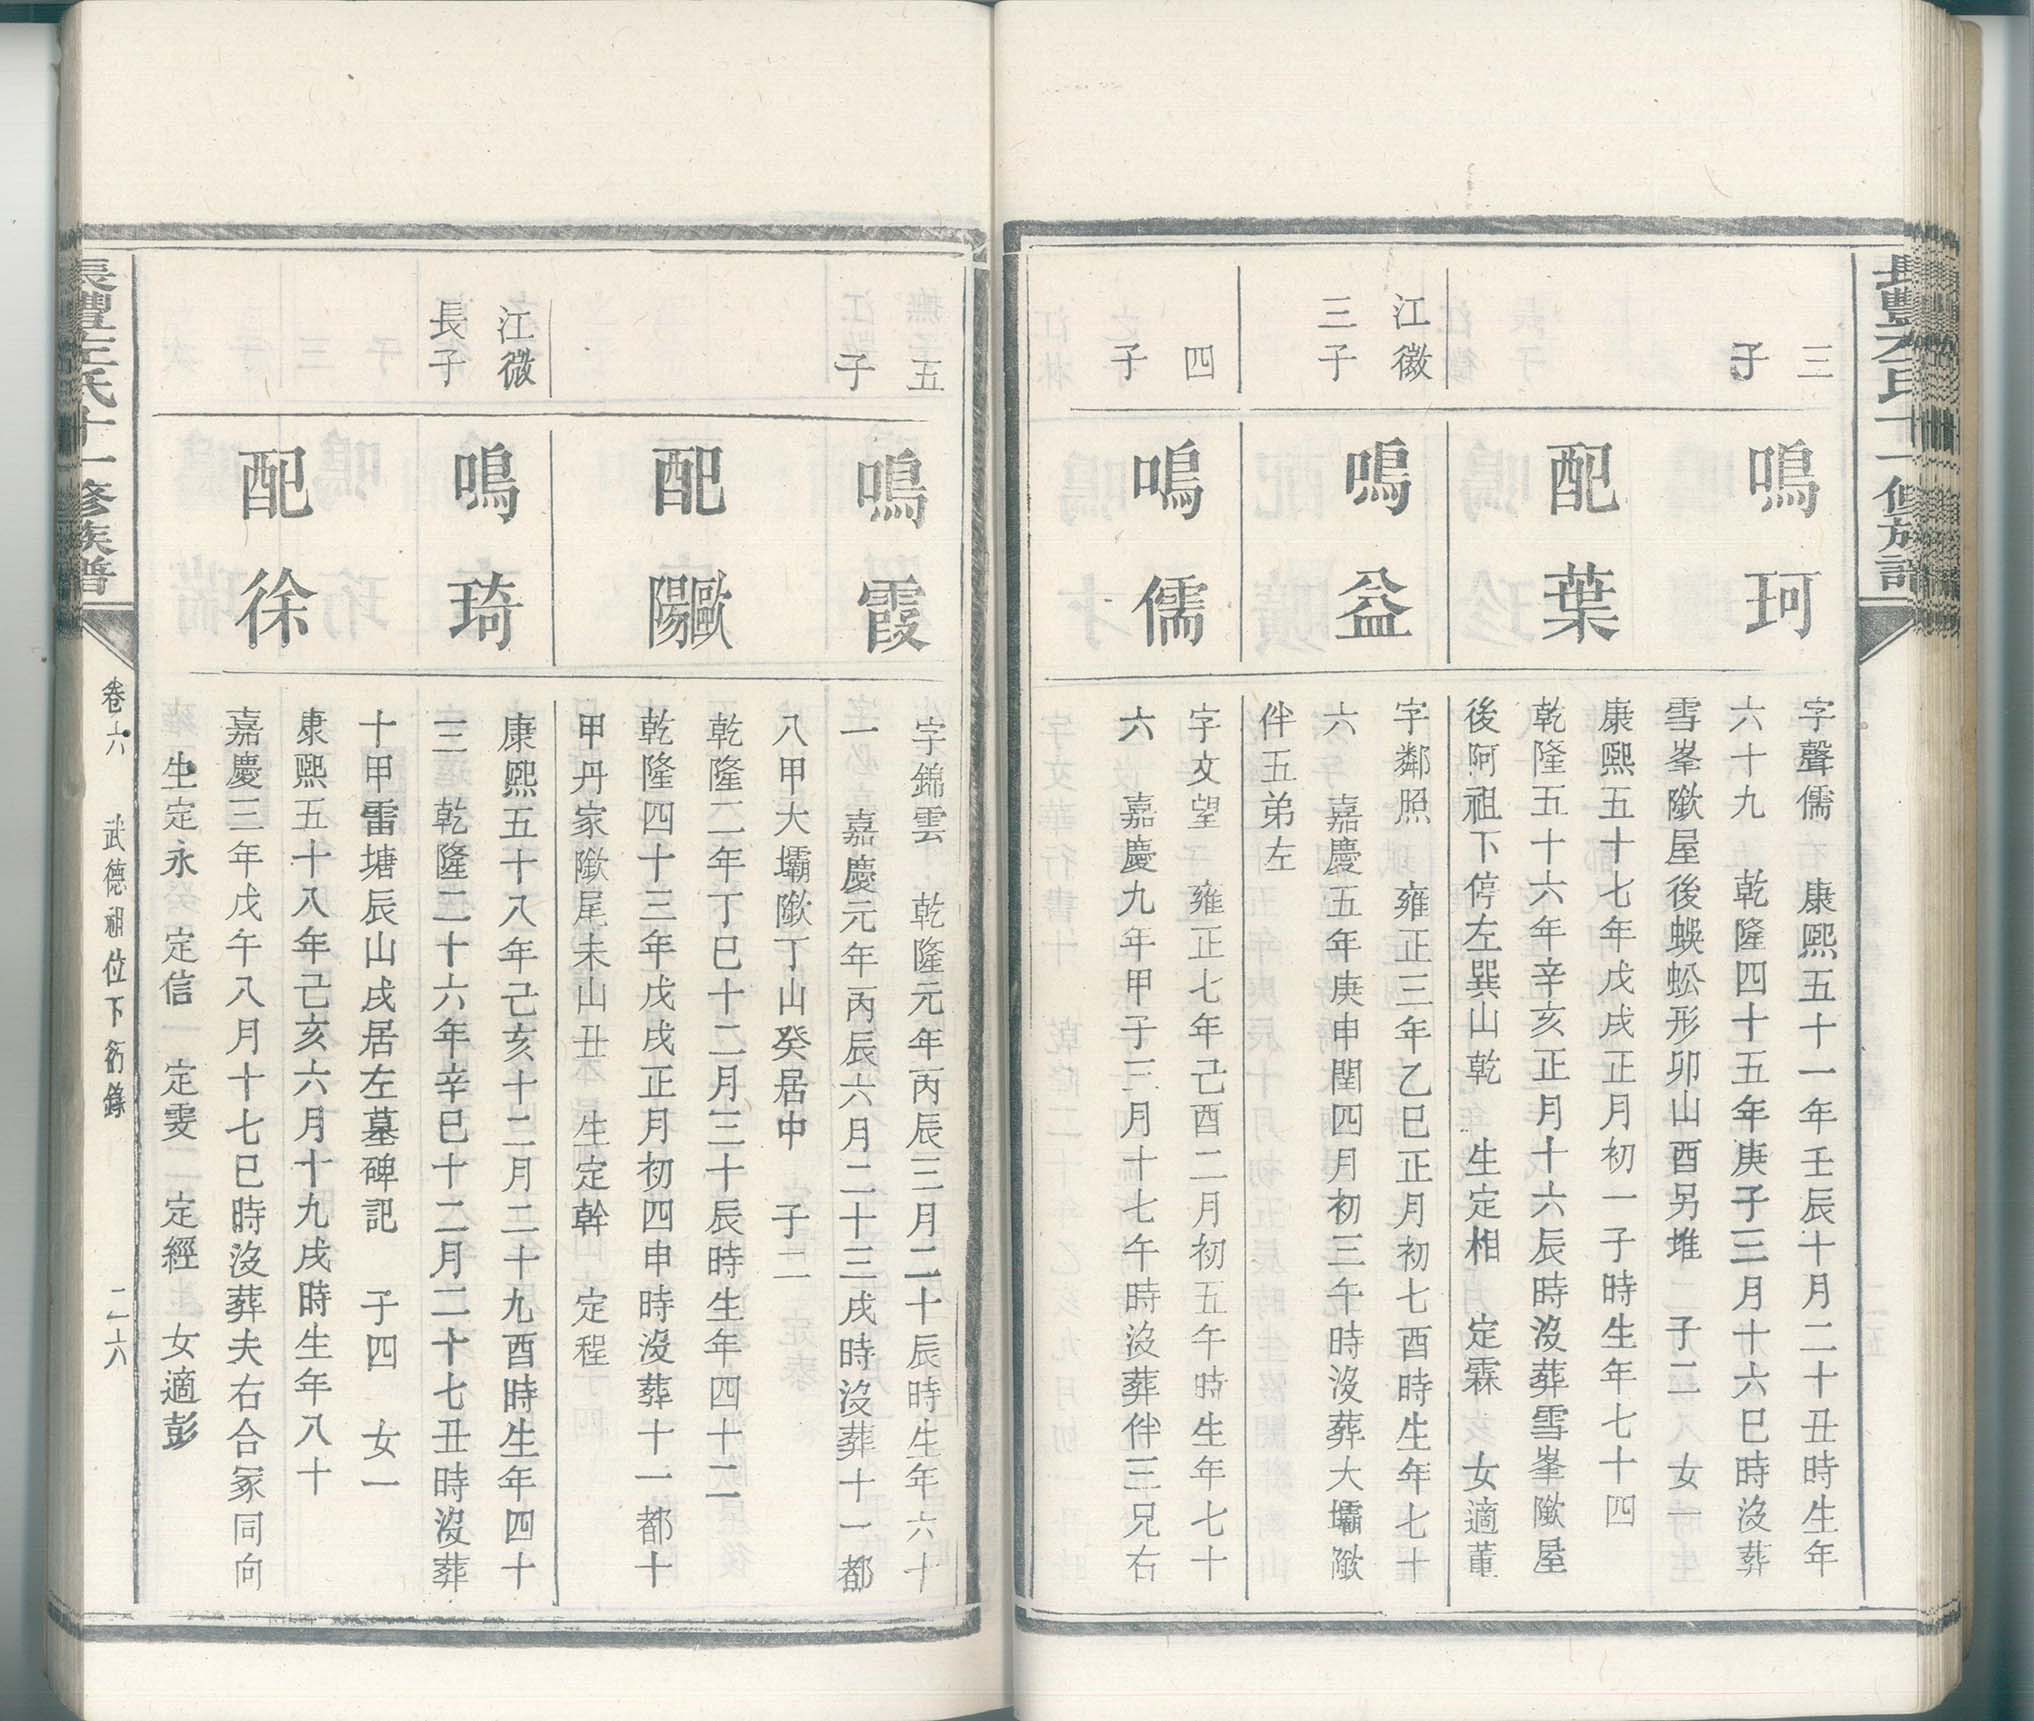 長豐左氏十一修族譜
三
子
鳴珂
字聲儒 康熙五十一年壬辰十月二十丑時生年
六十九 乾隆四十五年庚子三月十六巳時沒葬
雪峯歘屋後蜈蚣形卯山酉另堆 子二 女一
配葉
康熙五十七年戊戌正月初一子時生年七十四
乾隆五十六年辛亥正月十六辰時沒葬雪峯歘屋
後阿祖下停左巽山乾 生定相 定霖 女適董
江徽
三子
鳴益
字鄰照 雍正三年乙巳正月初七酉時生年七十
六 嘉慶五年庚申閏四月初三午時沒葬大壩歘
伴五弟左
四
子
鳴儒
字文望 雍正七年己酉二月初五午時生年七十
六 嘉慶九年甲子三月十七午時沒葬伴三兄右
五
子
鳴霞
字錦雲 乾隆元年丙辰三月二十辰時生年六十
一 嘉慶元年丙辰六月二十三戌時沒葬十一都
八甲大壩歘丁山癸居中 子二
配歐陽
乾隆二年丁巳十二月三十辰時生年四十二
乾隆四十三年戊戌正月初四申時沒葬十一都十
甲丹家歘尾未山丑 生定幹 定程
江微
長子
鳴琦
康熙五十八年己亥十二月二十九酉時生年四十
三 乾隆二十六年辛巳十二月二十七丑時沒葬
十甲雷塘辰山戌居左墓碑記 子四 女一
配徐
康熙五十八年己亥六月十九戌時生年八十
嘉慶三年戊午八月十七巳時沒葬夫右合冢同向
生定永 定信 定雯 定經 女適彭
長豐左氏十一修族譜
卷六 武德祖位下衍錄 二六